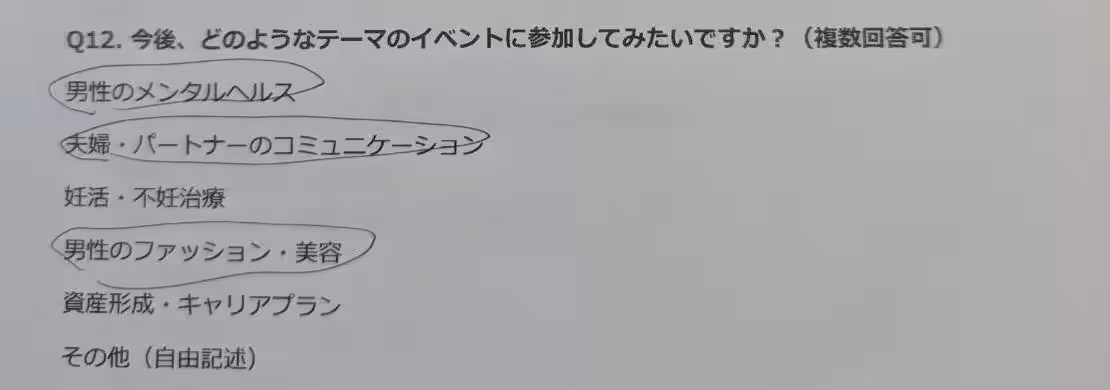 Q12. 今後、どのようなテーマのイベントに参加してみたいですか？（複数回答可）
男性のメンタルヘルス
夫婦・パートナーのコミュニケーション
妊活・不妊治療
男性のファッション・美容
資産形成・キャリアプラン
その他（自由記述）